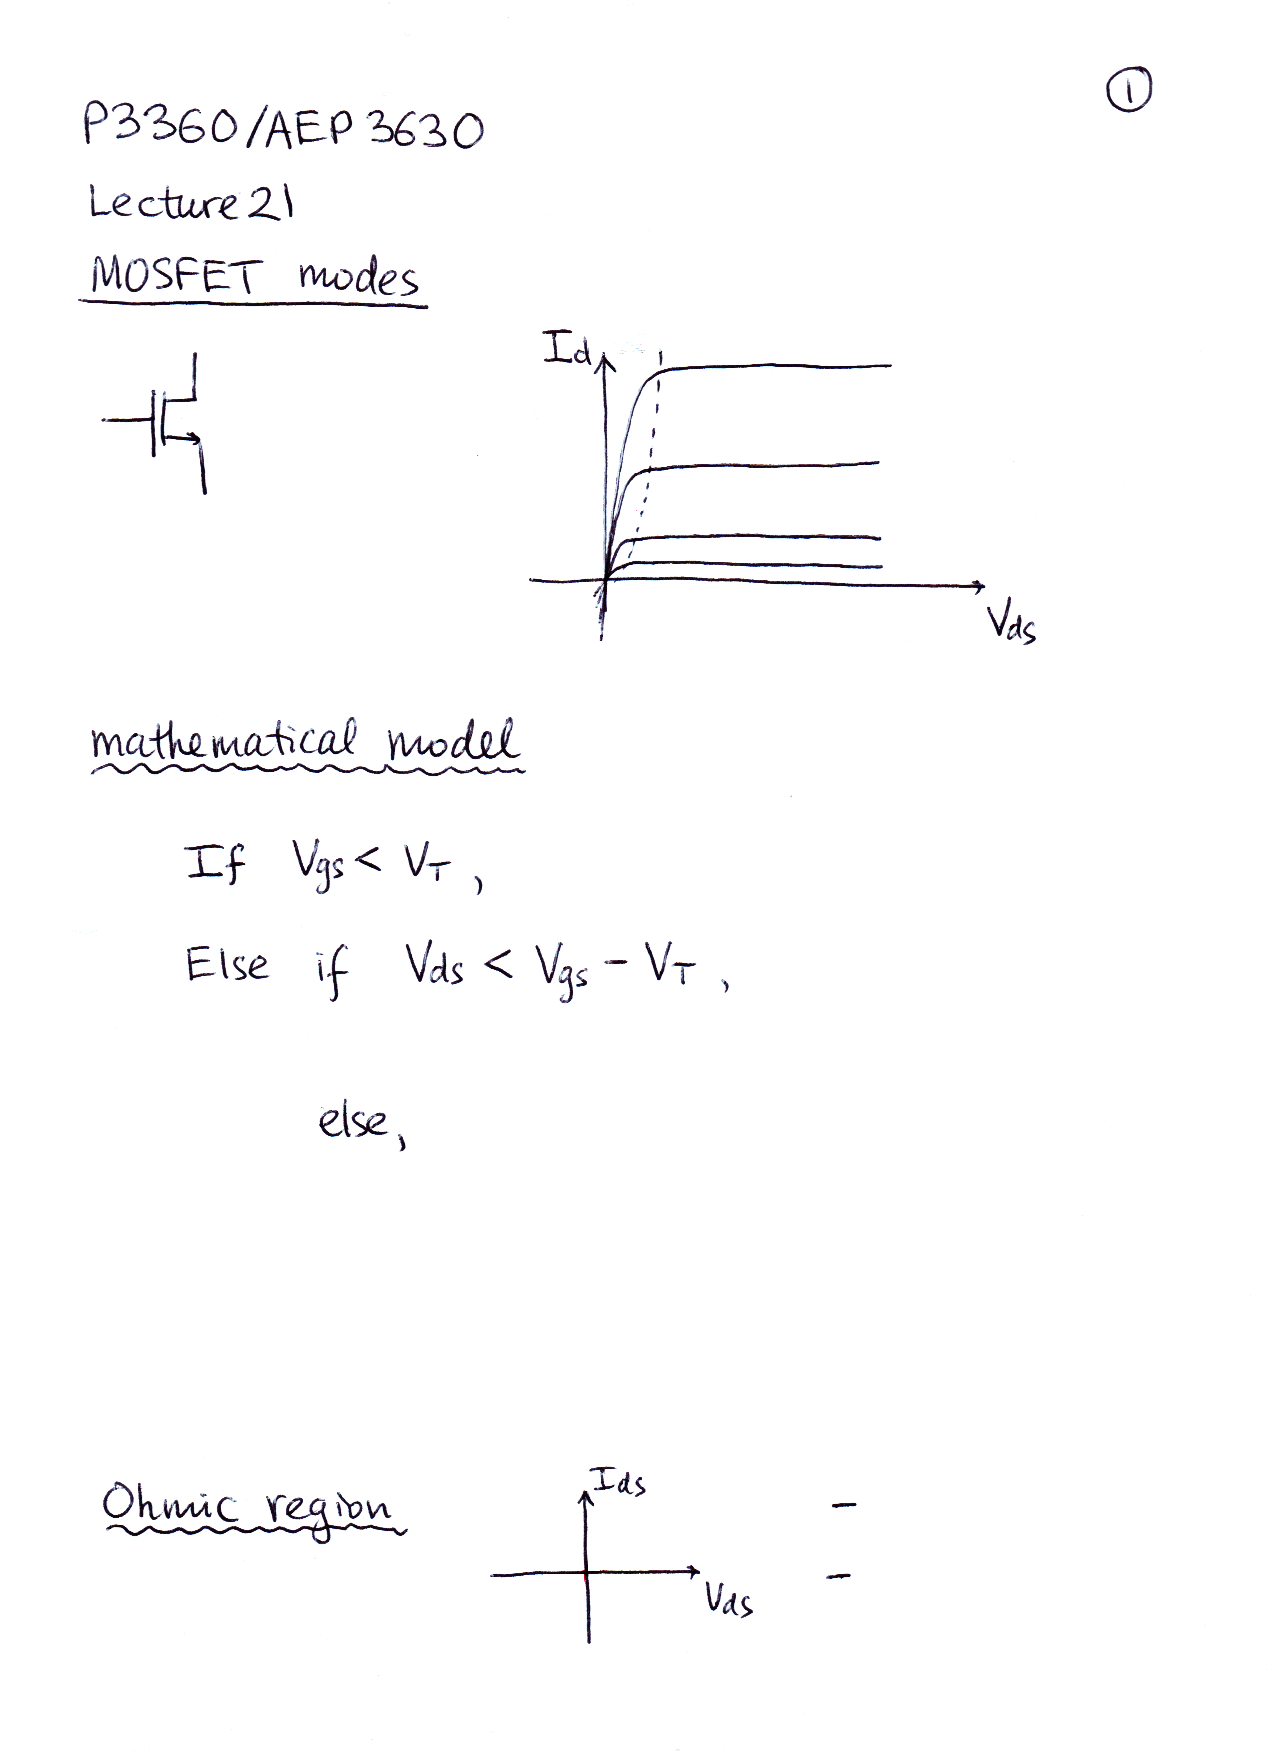 ①
P3360/AEP 3630
Lecture 21
MOSFET modes
Id
Vds
mathematical model
If Vgs < VT,
Else if Vds < Vgs - VT,
else,
Ohmic region
Ids
-
-
Vds